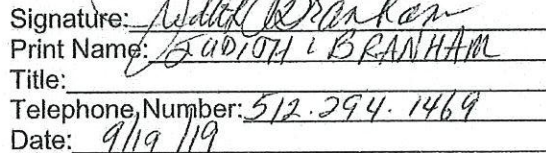 Signature: Judith L Branham
Print Name: JUDITH L BRANHAM
Title:
Telephone Number: 512.294.1469
Date: 9/19/19